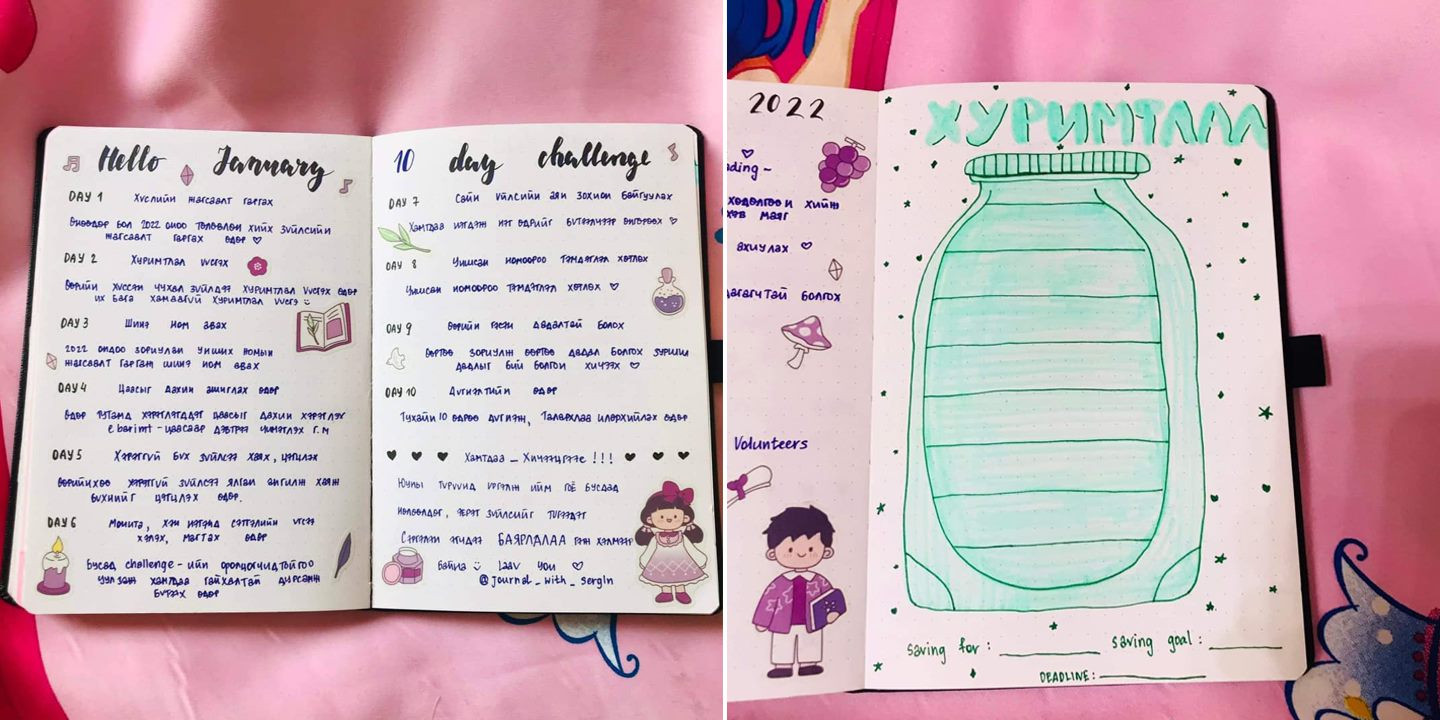 Hello January
DAY 1 Хүслийн жагсаалт гаргах
Өнөөдөр бол 2022 ондоо төлөвлөн хийх зүйлсийн
жагсаалт гаргах өдөр ♡
DAY 2 Хуримтлал үүсгэх
Өөрийн хүссэн чухал зүйлдээ хуримтлал үүсгэх өдөр
их бага хамаагүй хуримтлал үүсгэ
DAY 3 Шинэ ном авах
2022 ондоо зориулан унших номын
жагсаалт гаргаж шинэ ном авах
DAY 4 Цаасыг дахин ашиглах өдөр
Өдөр тутамд хэрэглэгддэг цаасыг дахин хэрэглэх
e barimt - цаасаар дэвтрээ чимэглэх г.м
DAY 5 Хэрэггүй бүх зүйлсээ хаях, цэгцлэх
Өөрийнхөө хэрэггүй зүйлсээ ялган ангилж хаяж
бүхнийг цэгцлэх өдөр.
DAY 6 Монита, хэн нэгэнд сэтгэлийн үгсээ
хэлэх, магтах өдөр
Бусад challenge-ийн оролцогчидтойгоо
уулзаж хамтдаа гайхалтай дурсамж
бүтээх өдөр
10 day challenge
DAY 7 Сайн үйлсийн аян зохион байгуулах
Хамтдаа нэгдэж нэг өдрийг бүтээлчээр өнгөрөөх ♡
DAY 8 Уншсан номоороо тэмдэглэл хөтлөх
Уншсан номоороо тэмдэглэл хөтлөх ♡
DAY 9 Өөрийн гэсэн дадалтай болох
Өөртөө зориулж өөртөө дадал болгох зуршил
дадлыг бий болгон хичээх ♡
DAY 10 Дүгнэлтийн өдөр
Тухайн 10 өдрөө дүгнэж, Талархлаа илэрхийлэх өдөр
♥ ♥ ♥ Хамтдаа _ Хичээцгээе !!! ♥ ♥ ♥
Юуны түрүүнд үргэлж ийм гоё бусдад
нөлөөлдөг, эерэг зүйлсийг түгээдэг
Сэргэлэн эгчдээ БАЯРЛАЛАА гэж хэлмээр
байна Laav you ♡
@journal_with_sergln
2022
ading ~
хөдөлгөөн хийж
хэв маяг
ахиулах ♡
болох
Volunteers
ХУРИМТЛАЛ
saving for : ________ saving goal : ________
DEADLINE : ________